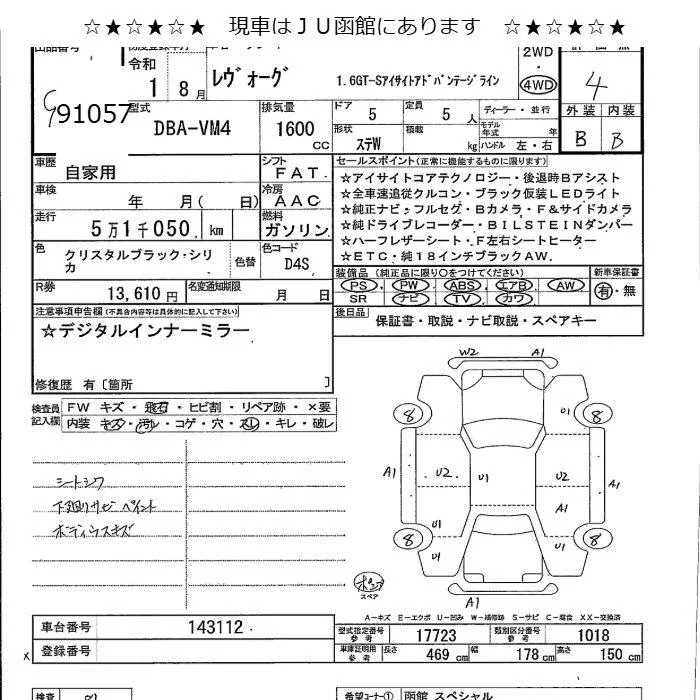 ☆★☆★☆★ 現車はＪＵ函館にあります ☆★☆★☆★
令和
1 8月
レヴォーグ
1.6GT-Sアイサイトアドバンテージライン
2WD
4WD
4
91057
型式
DBA-VM4
排気量
1600 CC
ドア 5
定員 5人
形状 ステW
積載 kg
ディーラー・並行
モデル年式 年
ハンドル 左・右
外装 内装
B B
車歴 自家用
シフト FAT
車検 年 月( 日)
冷房 AAC
走行 5万1千050 km
燃料 ガソリン
色 クリスタルブラック・シリカ
色替
色コード D4S
R券 13,610円
名変通知期限 月 日
セールスポイント(正常に機能するものに限ります)
☆アイサイトコアテクノロジー・後退時Bアシスト
☆全車速追従クルコン・ブラック仮装LEDライト
☆純正ナビ・フルセグ・Bカメラ・F&サイドカメラ
☆純ドライブレコーダー・BILSTEINダンパー
☆ハーフレザーシート・F左右シートヒーター
☆ETC・純18インチブラックAW.
装備品(純正品に限り○をつけてください)
PS PW ABS エアB AW
SR ナビ TV カワ
新車保証書
有・無
後日品
保証書・取説・ナビ取説・スペアキー
注意事項申告欄(不具合内容等は具体的に記入して下さい)
☆デジタルインナーミラー
修復歴 有〔箇所 〕
検査員記入欄
FW キズ・飛石・ヒビ割・リペア跡・×要
内装 キズ・汚レ・コゲ・穴・スレ・キレ・破レ
シートシワ
下廻りサビ ペイント
ボディウスキズ
W2 A1
8 U1 8
A1 U2 U1 U2 A1
A1
U1
8 U1 U1 8
A1
スペア
A－キズ E－エクボ U－凹み W－補修跡 S－サビ C－腐食 XX－交換済
車台番号 143112
登録番号
型式指定番号参考 17723
類別区分番号参考 1018
車庫証明用参考
長さ 469 cm
幅 178 cm
高さ 150 cm
x
検査
希望コーナー① 函館 スペシャル